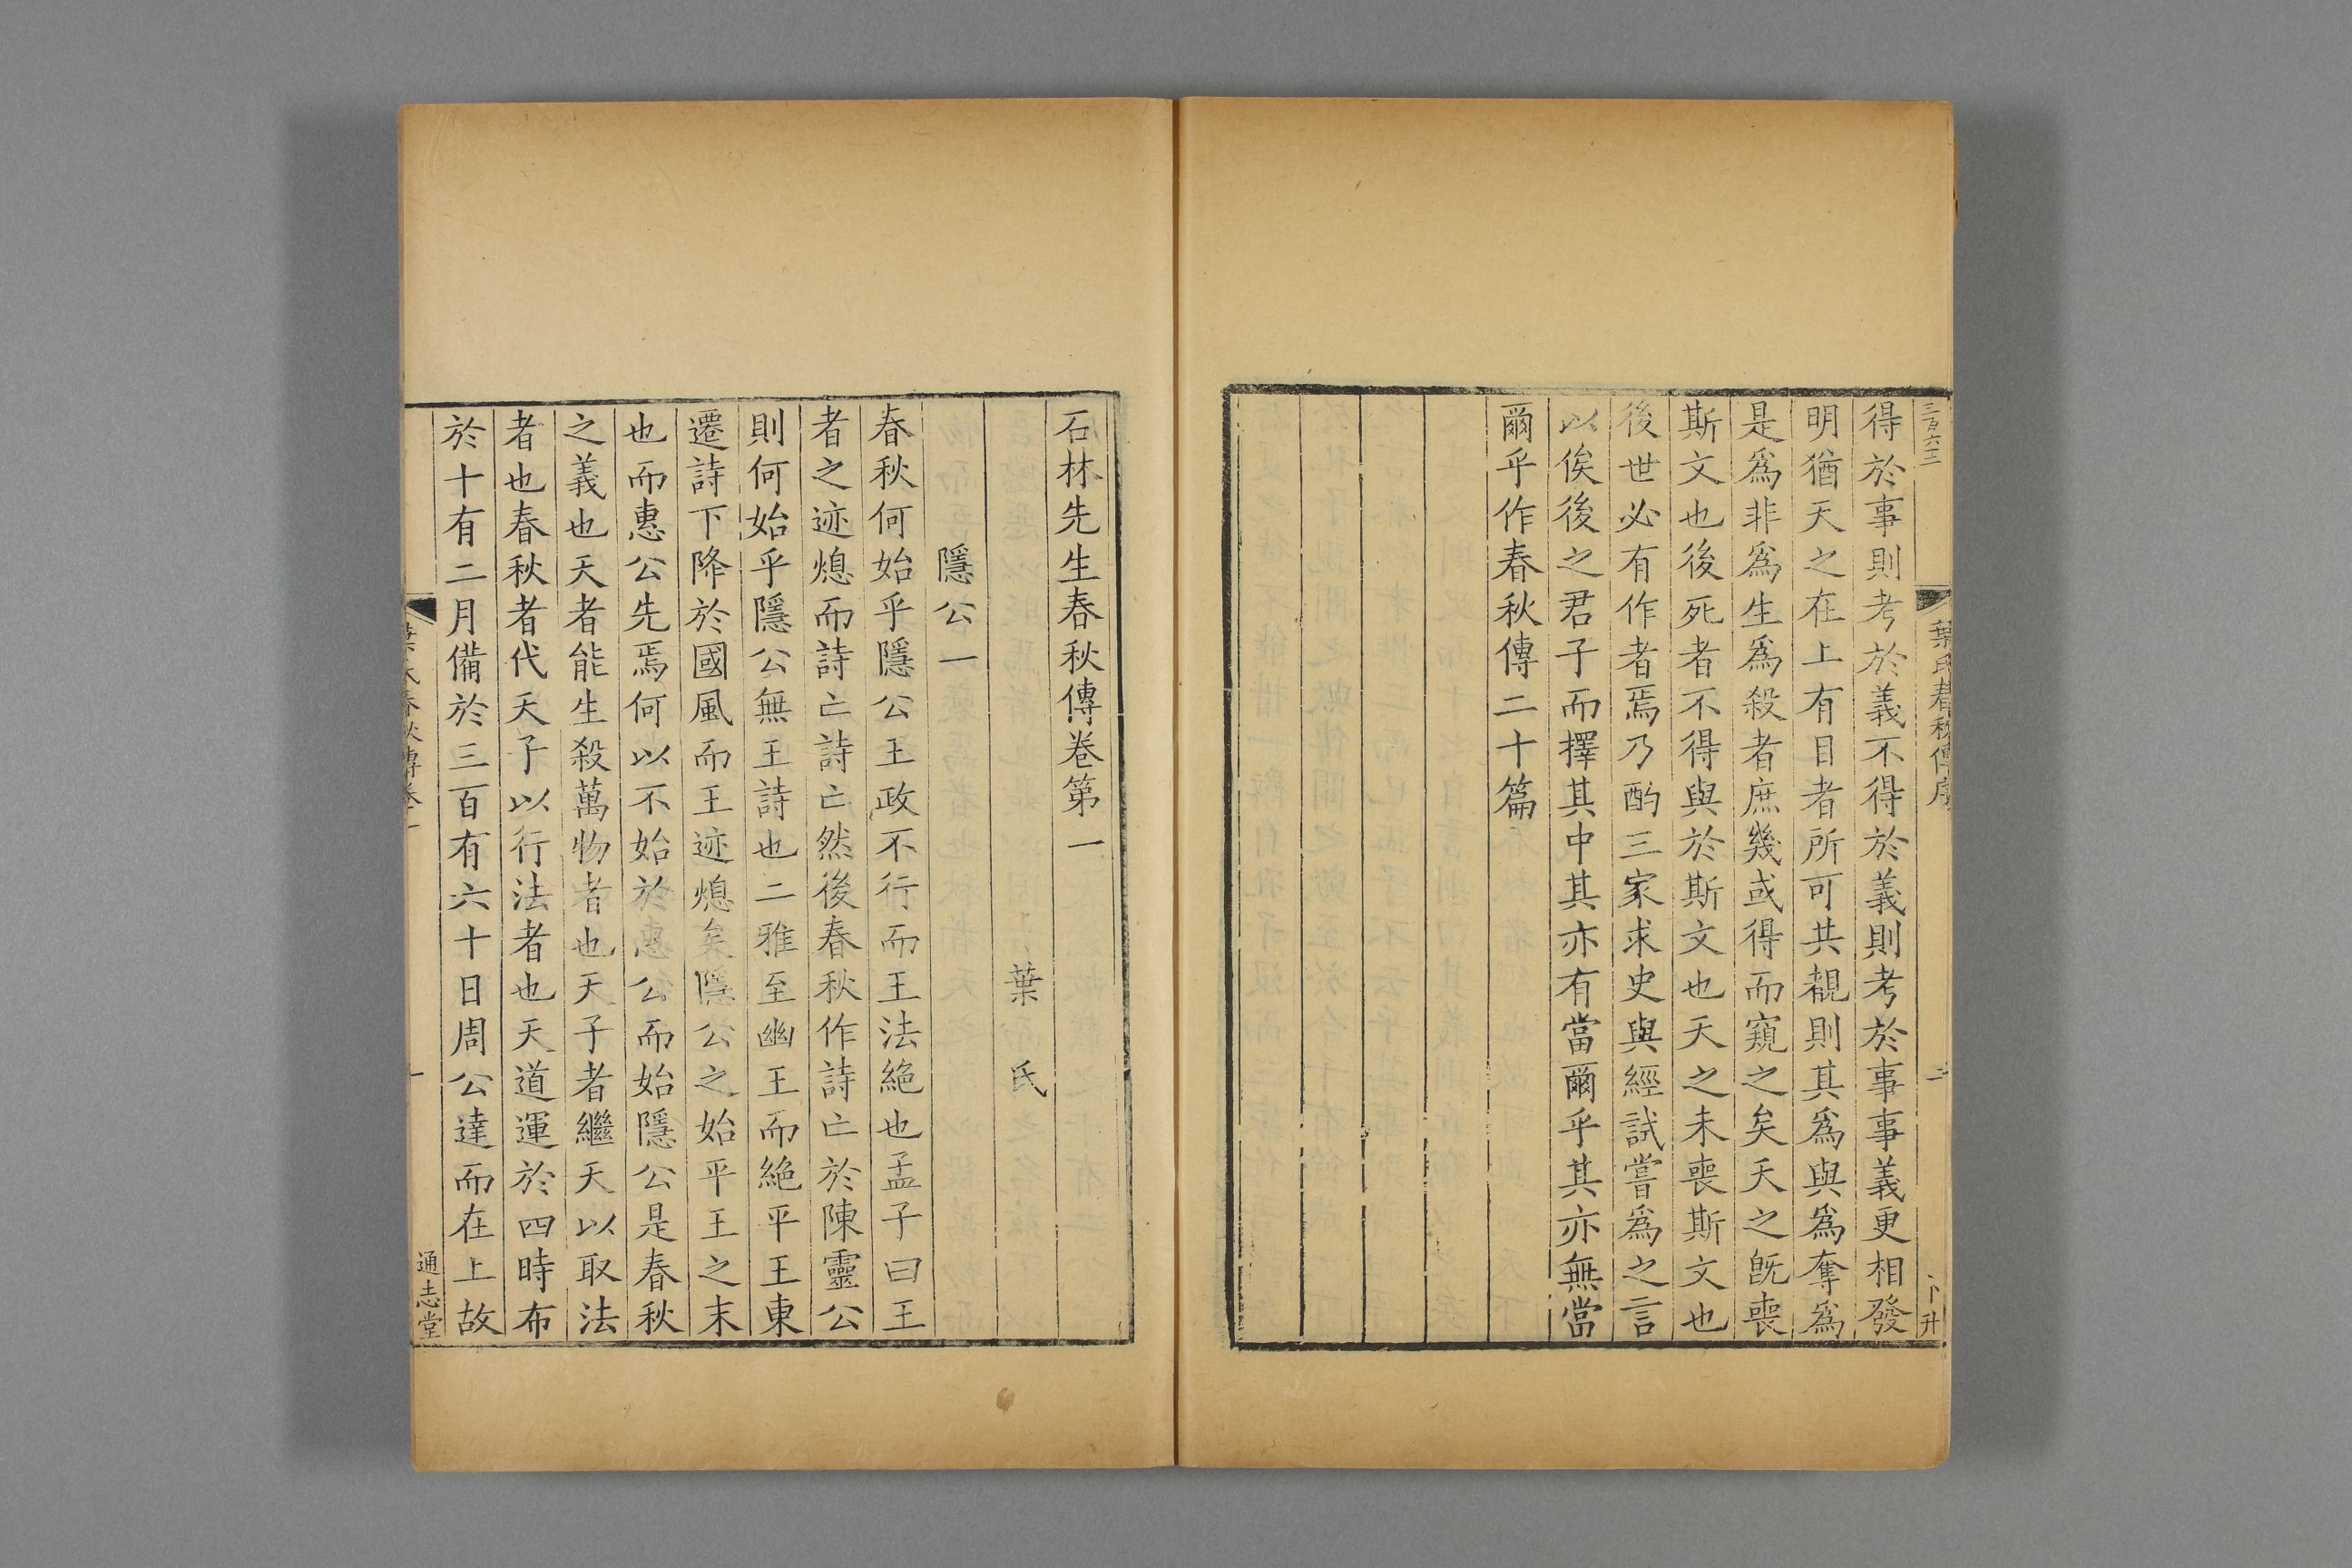 三百六三
葉氏春秋傳序
二
卜升
得於事則考於義不得於義則考於事事義更相發
明猶天之在上有目者所可共覩則其爲與爲奪爲
是爲非爲生爲殺者庶幾或得而窺之矣天之旣喪
斯文也後死者不得與於斯文也天之未喪斯文也
後世必有作者焉乃酌三家求史與經試嘗爲之言
以俟後之君子而擇其中其亦有當爾乎其亦無當
爾乎作春秋傳二十篇
石林先生春秋傳卷第一
葉氏
隱公一
春秋何始乎隱公王政不行而王法絶也孟子曰王
者之迹熄而詩亡詩亡然後春秋作詩亡於陳靈公
則何始乎隱公無王詩也二雅至幽王而絶平王東
遷詩下降於國風而王迹熄矣隱公之始平王之末
也而惠公先焉何以不始於惠公而始隱公是春秋
之義也天者能生殺萬物者也天子者繼天以取法
者也春秋者代天子以行法者也天道運於四時布
於十有二月備於三百有六十日周公達而在上故
葉氏春秋傳卷一
一
通志堂